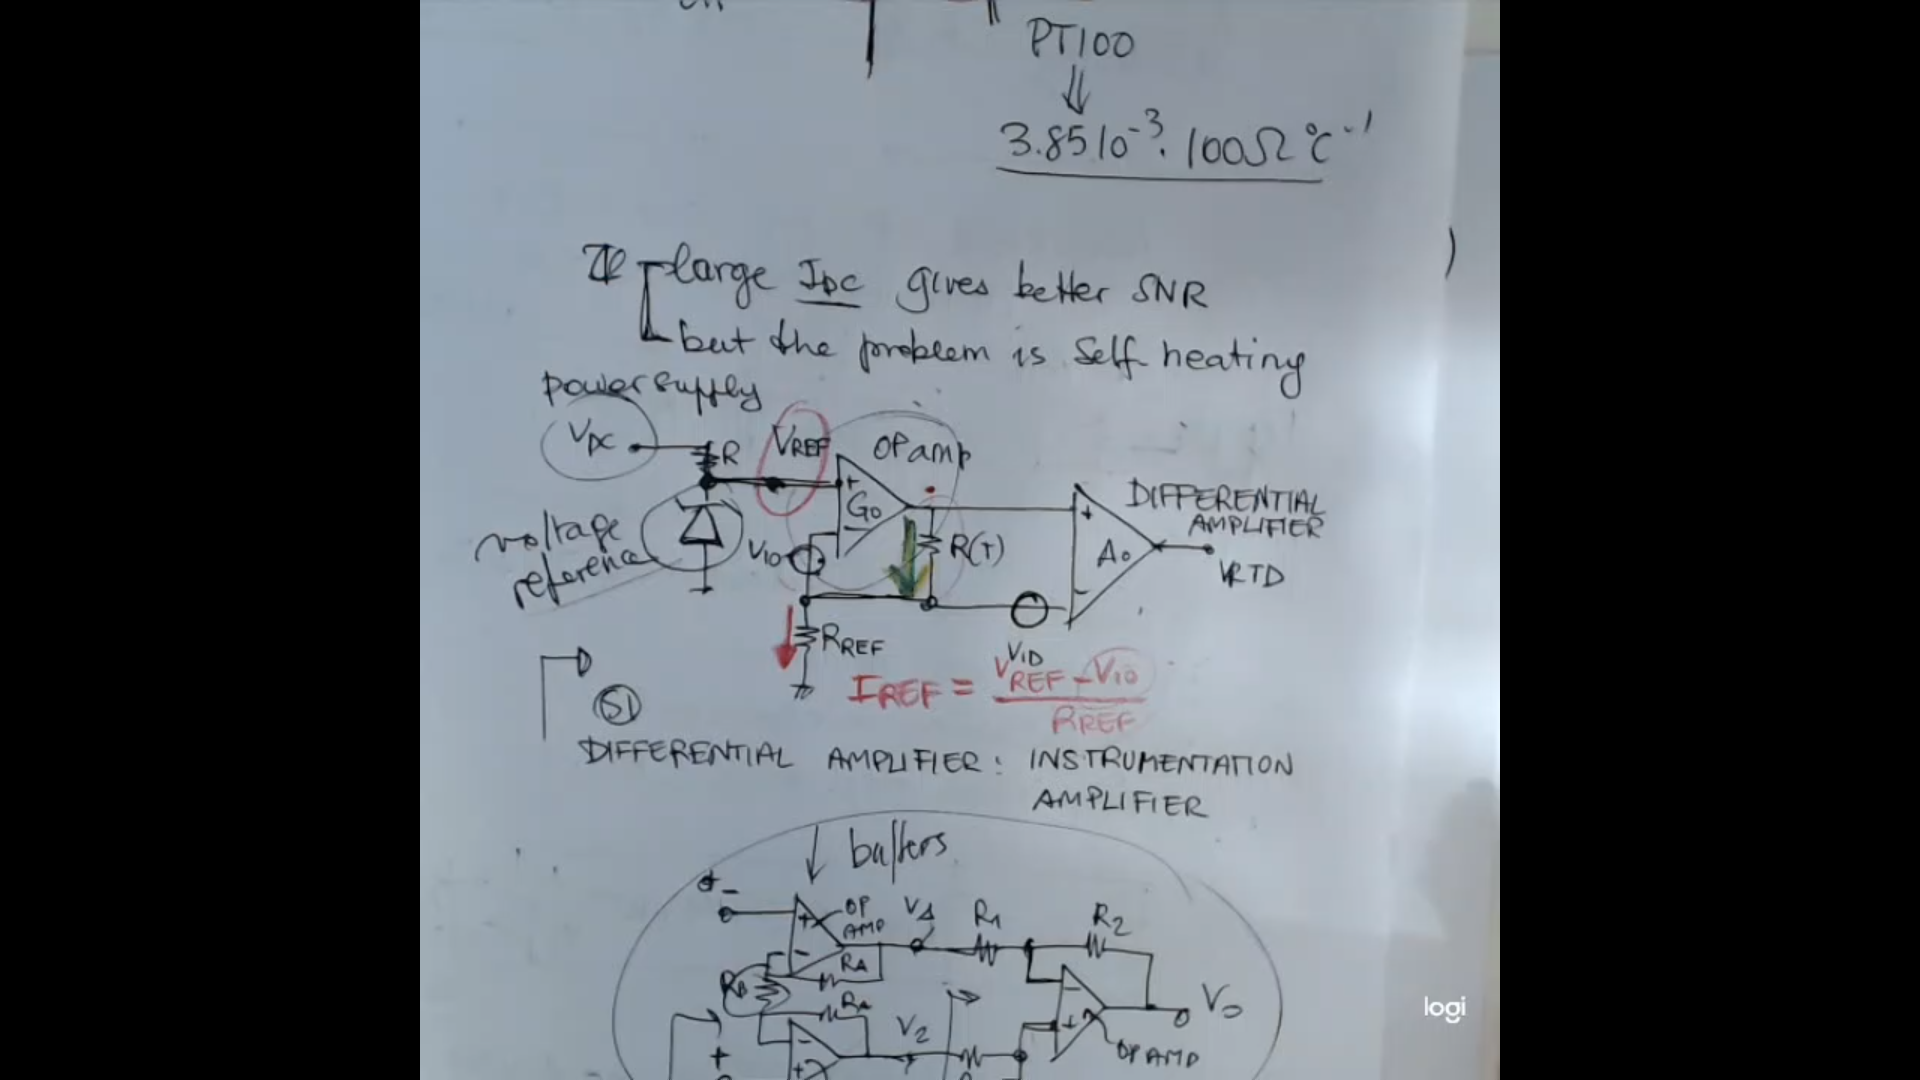 PT100
⇓
3.85 10⁻³. 100Ω °C⁻¹
large IDC gives better SNR
but the problem is Self heating
power supply
VDC
R
VREF
OP amp
+
G0
−
voltage
reference
VIO
R(T)
RREF
+
A0
−
DIFFERENTIAL
AMPLIFIER
VRTD
VID
IREF = VREF - VIO
RREF
S1
DIFFERENTIAL AMPLIFIER: INSTRUMENTATION
AMPLIFIER
buffers
+
−
OP
AMP
R1
R2
RA
RB
RA
V2
−
+
VO
OP AMP
+
logi